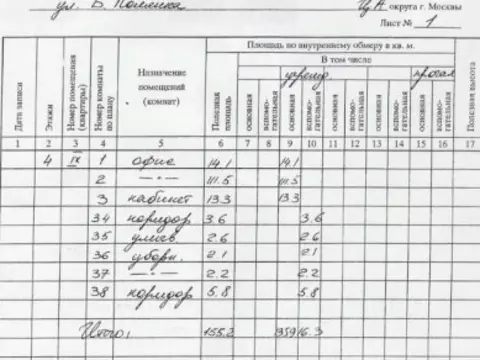 ул. Б. Полянка ЦА округа г. Москвы
Лист № 1
Площадь по внутреннему обмеру в кв. м.
В том числе
Дата записи Этажи Номер помещения (квартиры) Номер комнаты по плану Назначение помещений (комнат) Полезная площадь основная вспомогательная основная вспомогательная основная вспомогательная основная вспомогательная основная вспомогательная Полезная высота
1 2 3 4 5 6 7 8 9 10 11 12 13 14 15 16 17
4 IX 1 офис 14.1 14.1
2 —"— 111.5 111.5
3 кабинет 13.3 13.3
34 коридор 3.6 3.6
35 умыв. 2.6 2.6
36 уборн. 2.1 2.1
37 —"— 2.2 2.2
38 коридор 5.8 5.8
Итого: 155.2 16.3